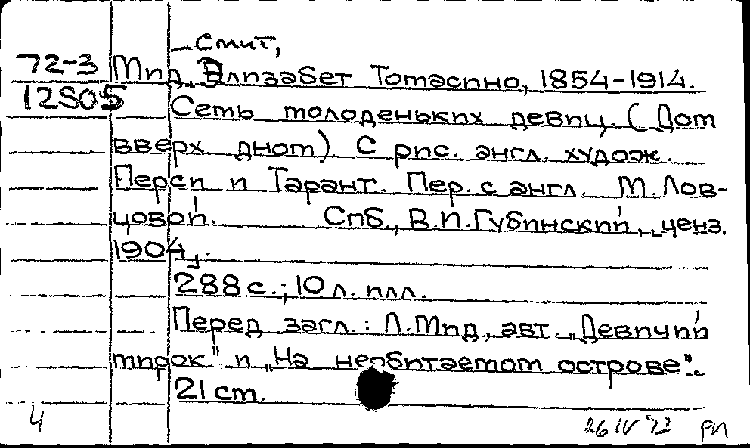 Смит,
72-3 Мид, Элизабет Томасина, 1854-1914.
12505 Семь молоденьких девиц. (Дом
вверх дном) С рис. англ. худож.
Перси и Тарант. Пер. с англ. М. Лов-
цовой. Спб., В.И. Губинский, ценз.
1904.
288 с.; 10 л. илл.
Перед загл.: Л. Мид, авт. „Девичий
мирок" и „На необитаемом острове".
21 cm.
4 26 IV 72